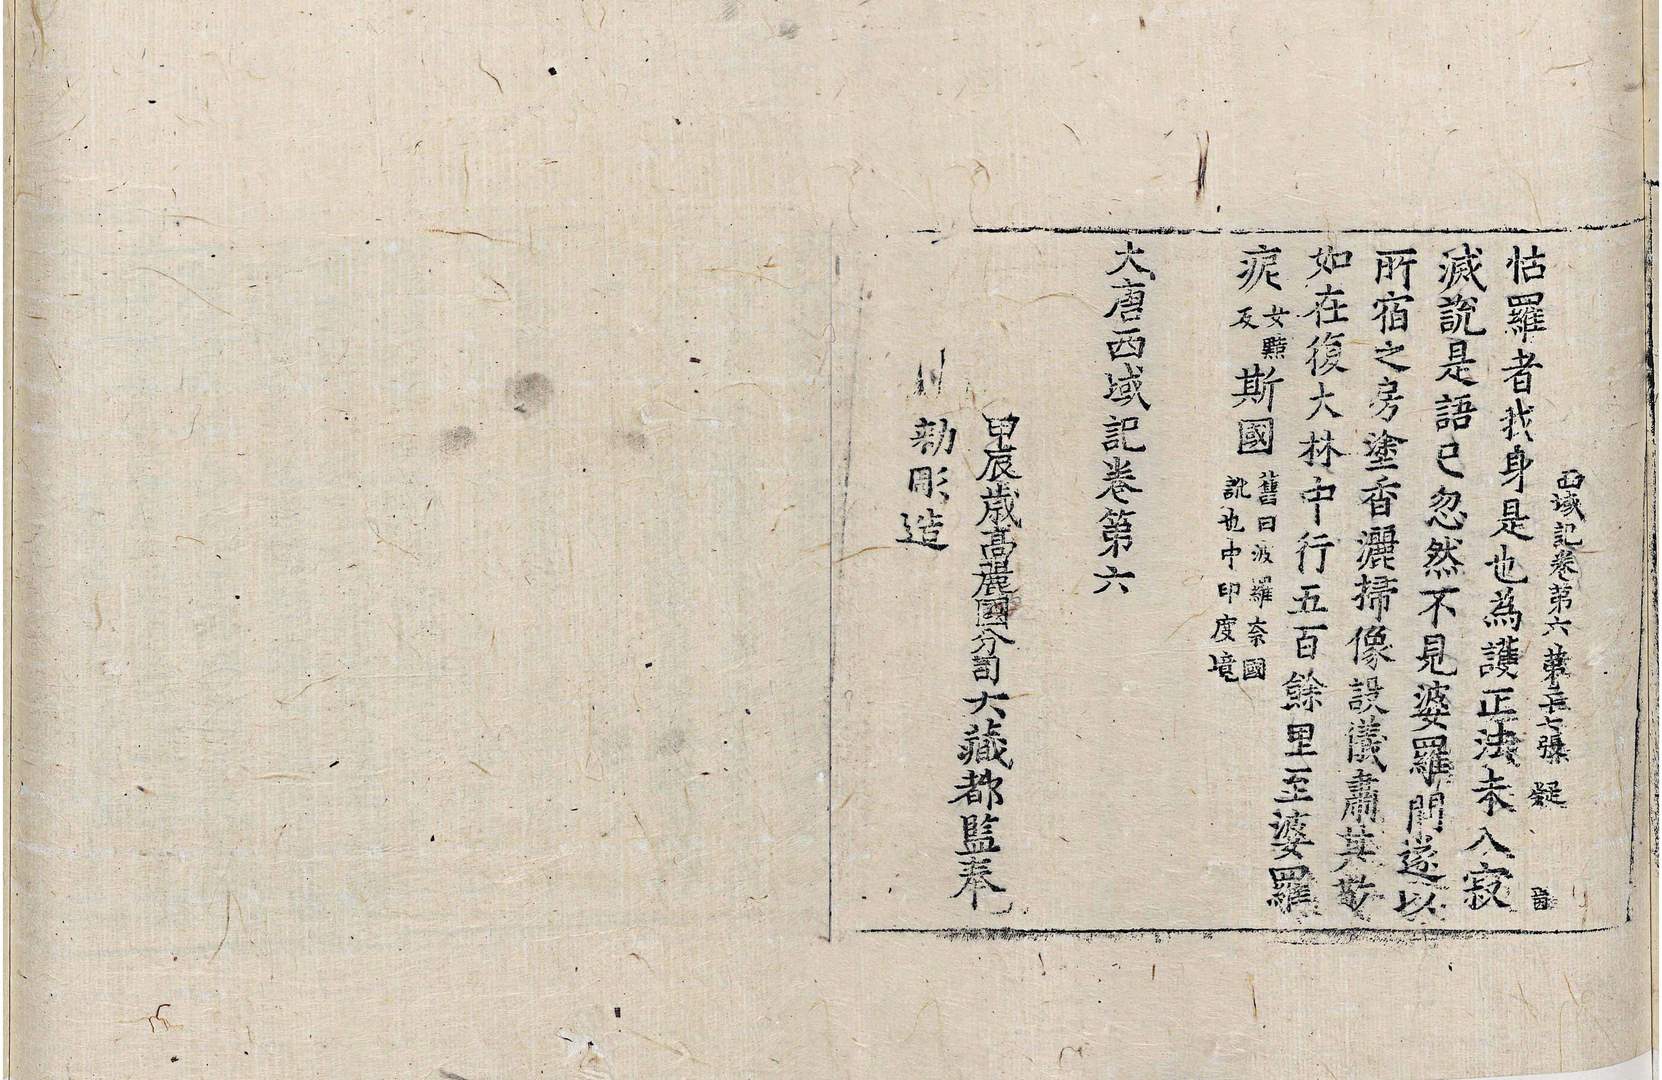 西域記卷第六 第二十七張 疑
怙羅者我身是也為護正法未入寂
滅說是語已忽然不見婆羅門遂以
所宿之房塗香灑掃像設儀肅其敬
如在復大林中行五百餘里至婆羅
痆女黠反斯國舊曰波羅奈國訛也中印度境
大唐西域記卷第六
甲辰歲高麗國分司大藏都監奉
勑彫造